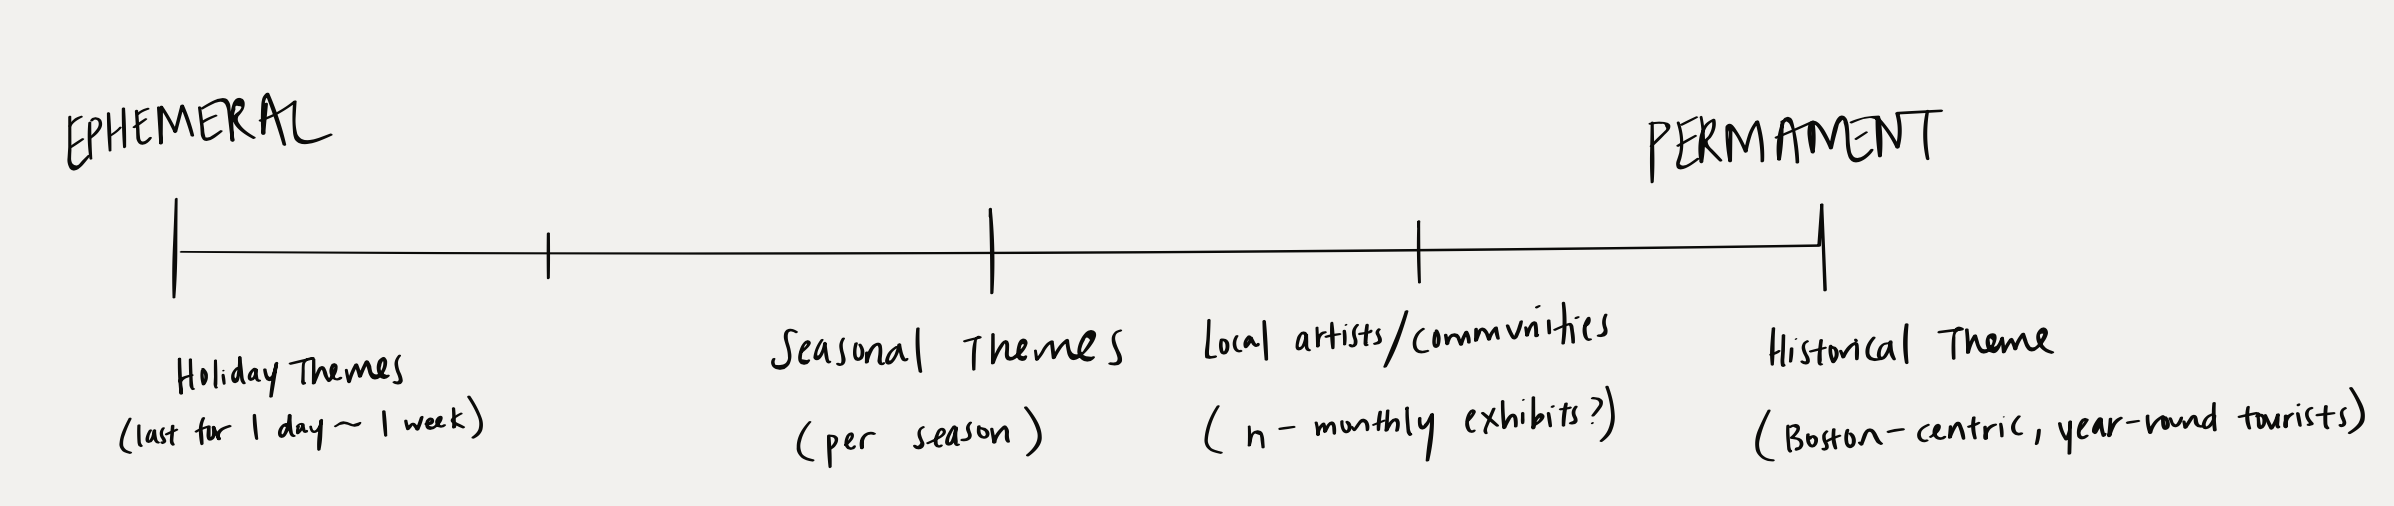 EPHEMERAL
PERMAMENT
Holiday Themes
(last for 1 day ~ 1 week)
Seasonal Themes
(per season)
Local artists/communities
(n-monthly exhibits?)
Historical Theme
(Boston-centric, year-round tourists)